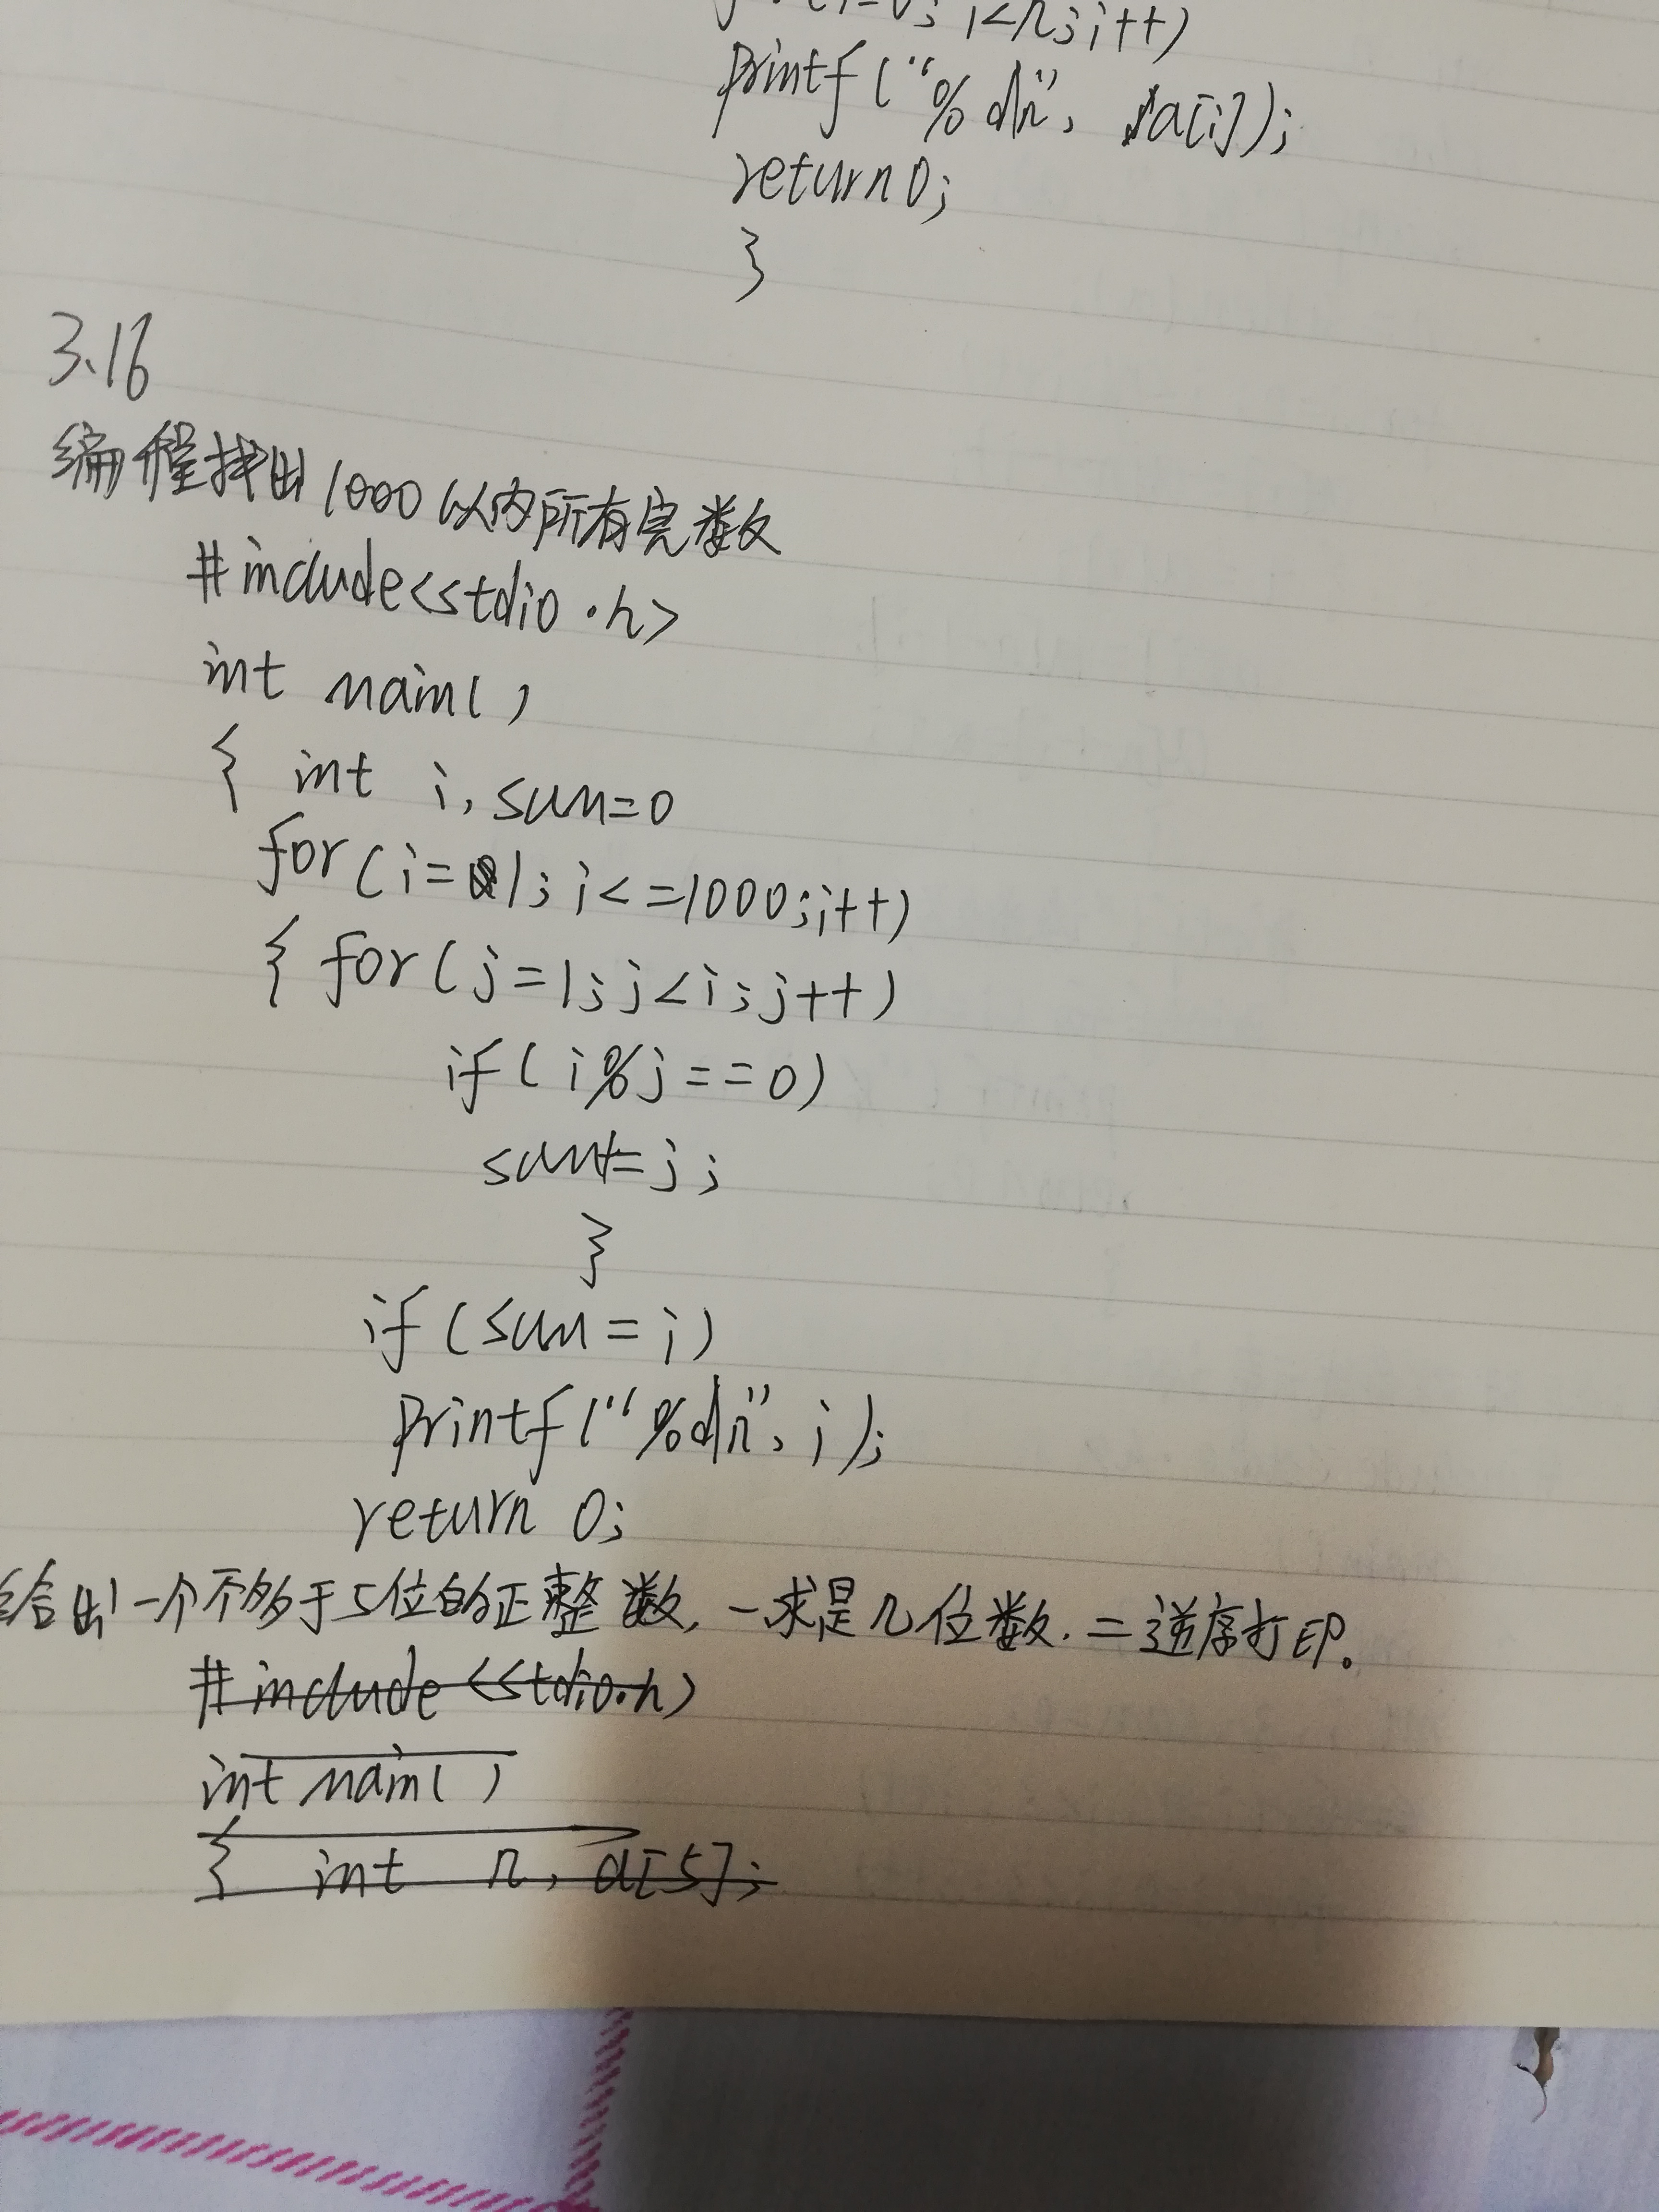 i<n;i++)
printf("%d\n", a[i]);
return 0;
}
3.16
编程找出1000以内所有完数
#include<stdio.h>
int main()
{ int i, sum=0
for(i=1;i<=1000;i++)
{ for(j=1;j<i;j++)
if(i%j==0)
sum+=j;
}
if(sum=i)
printf("%d\n",i);
return 0;
给出一个不多于5位的正整数,一求是几位数.二逆序打印。
#include<stdio.h>
int main()
{ int n, a[5];